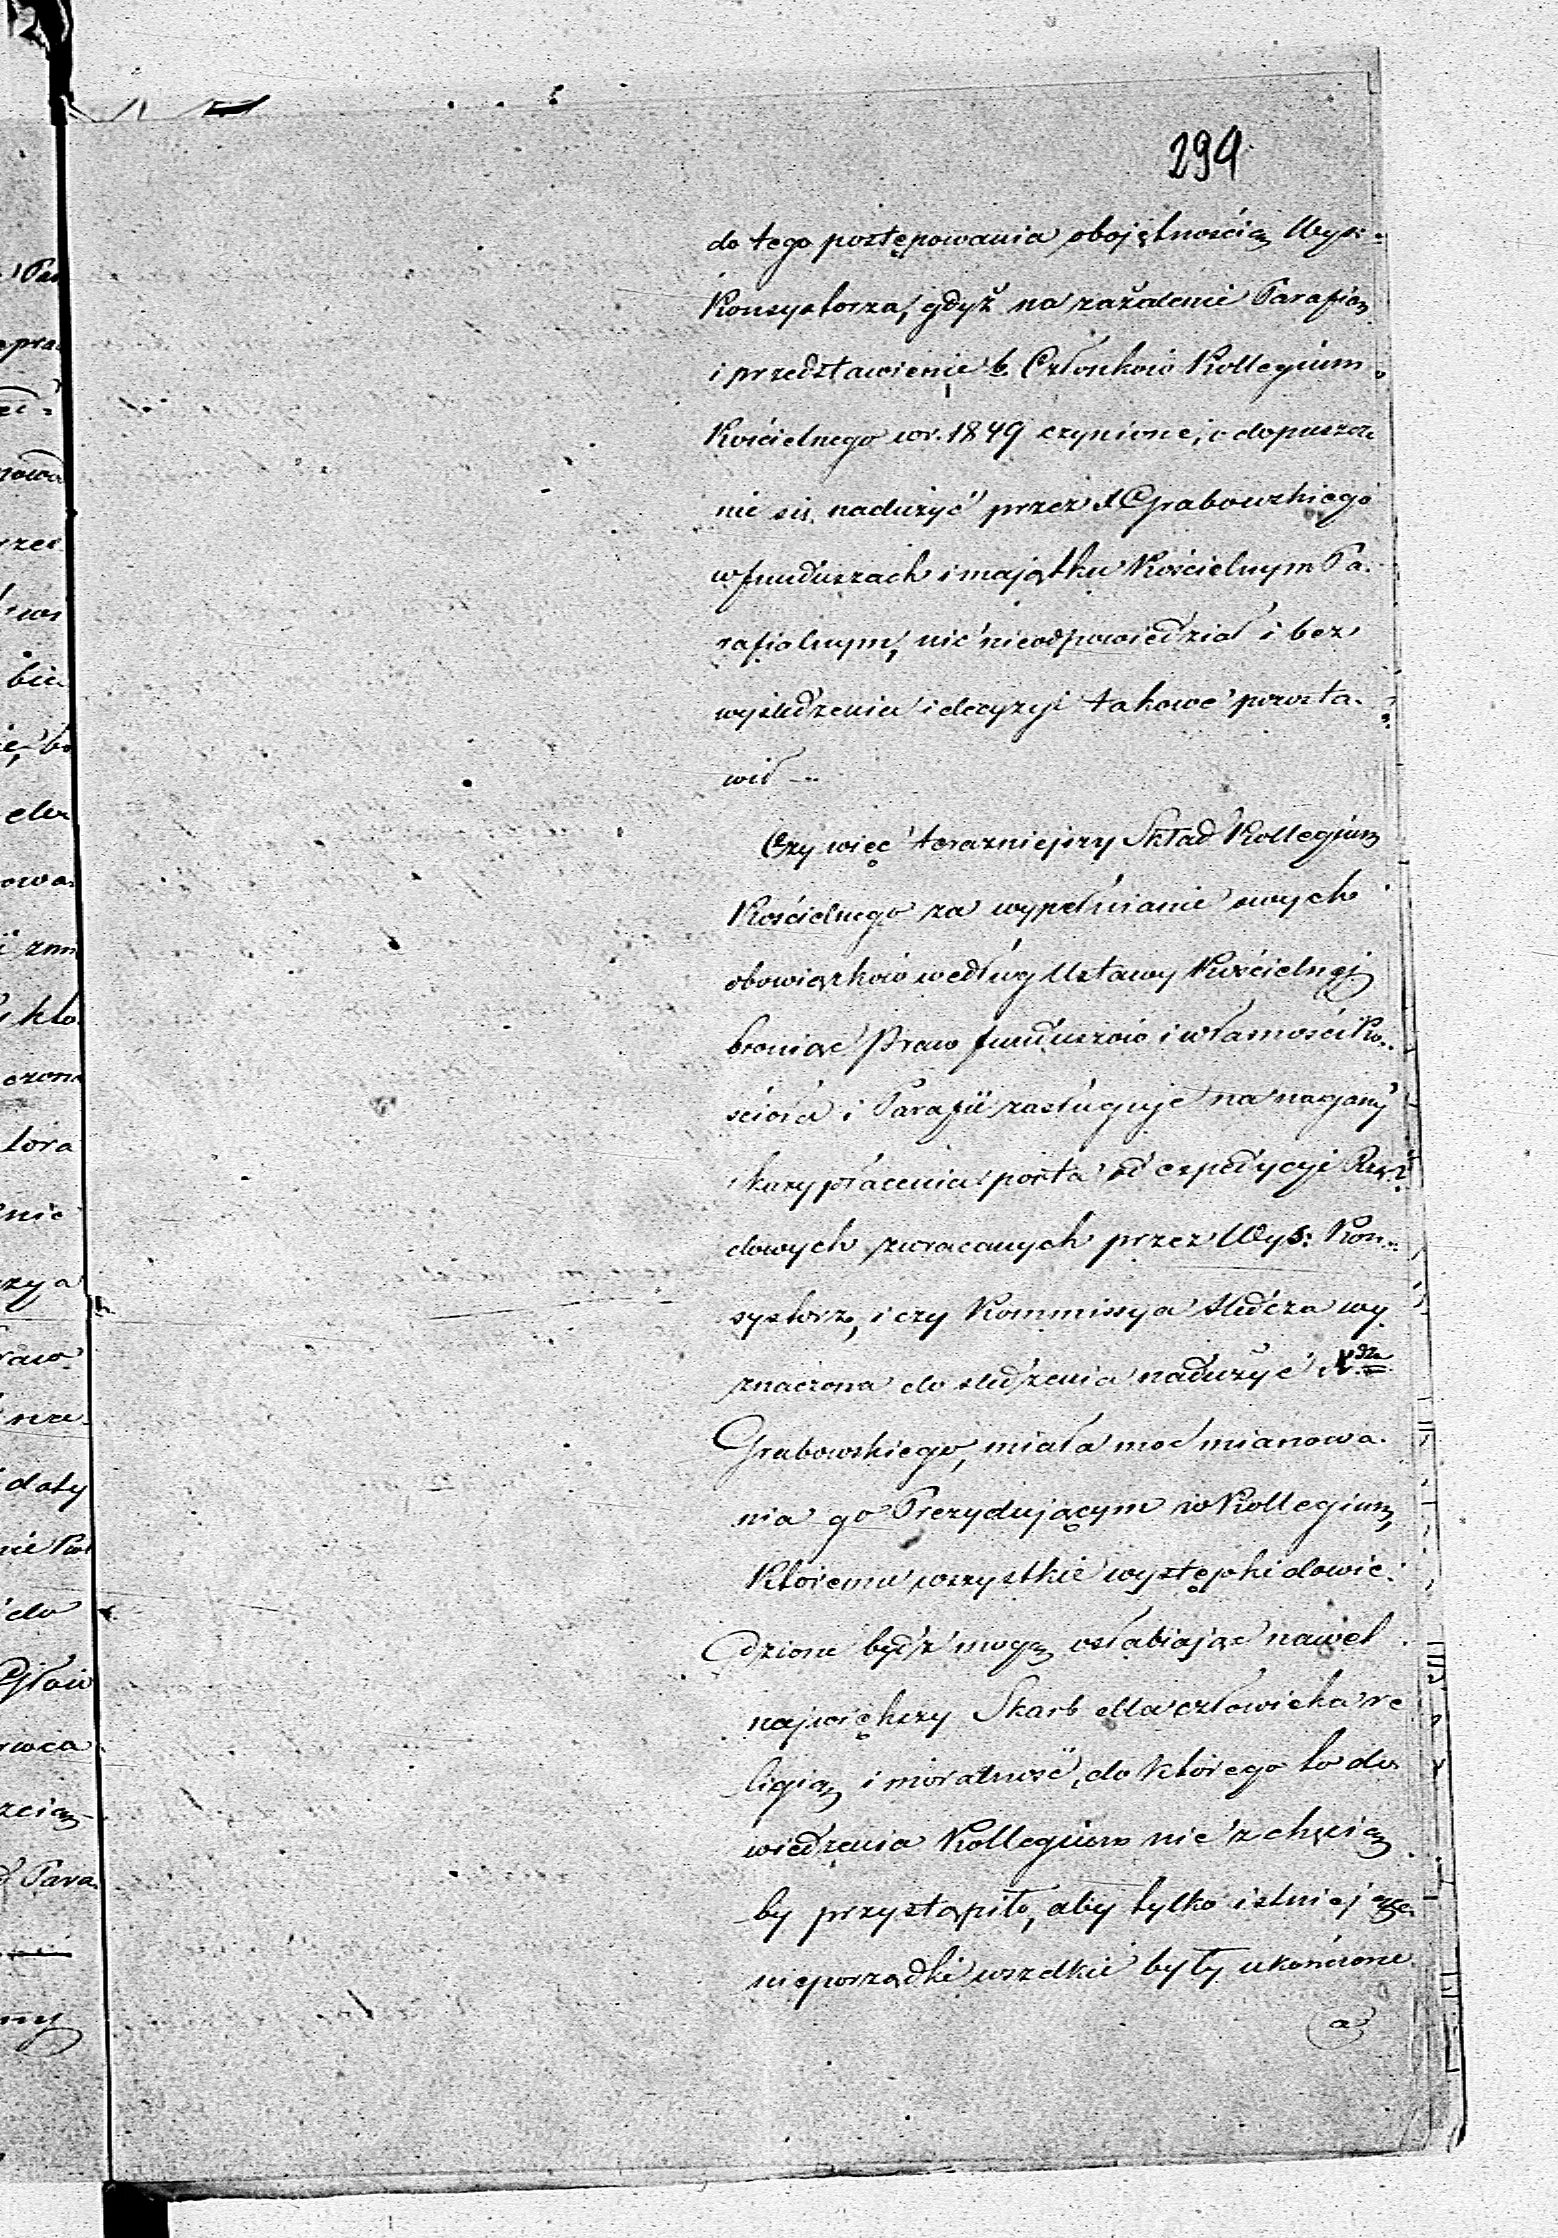 294
do tego postępowania obojętnością Wys:
Konsystorza, gdyż na zażalenie Parafian
i przedstawienie b. Członków Kollegium
Kościelnego w r. 1849 czynione, o dopuszcze
nie się nadużyć przez X Grabowskiego
w funduszach i majątku Kościelnym Pa-
rafialnym, nic nieodpowiedział i bez
wyśledzenia i decyzyi takowe pozosta-
wił
Czy więc teraźniejszy Skład Kollegium
Kościelnego za wypełnianie swych
obowiązków według Ustawy Kościelnej
broniąc Praw funduszów i własności Ko-
ścioła i Parafii zasługuje na nagany
kary płacenia porta od expedycyi Rzą-
dowych zwracanych przez Wys: Kon-
systorz, i czy Kommissya śledcza wy
znaczona do śledzenia nadużyć X.dza
Grabowskiego, miała moc mianowa-
nia go Prezydującym w Kollegium,
któremu wszystkie występki dowie-
dzione być mogą osłabiając nawet
największy Skarb dla człowieka re
ligią i moralność, do którego to do
wiedzenia Kollegium nie z chęcią
by przystąpiło, aby tylko istniejące
nieporządki wszelkie były ukończone
a